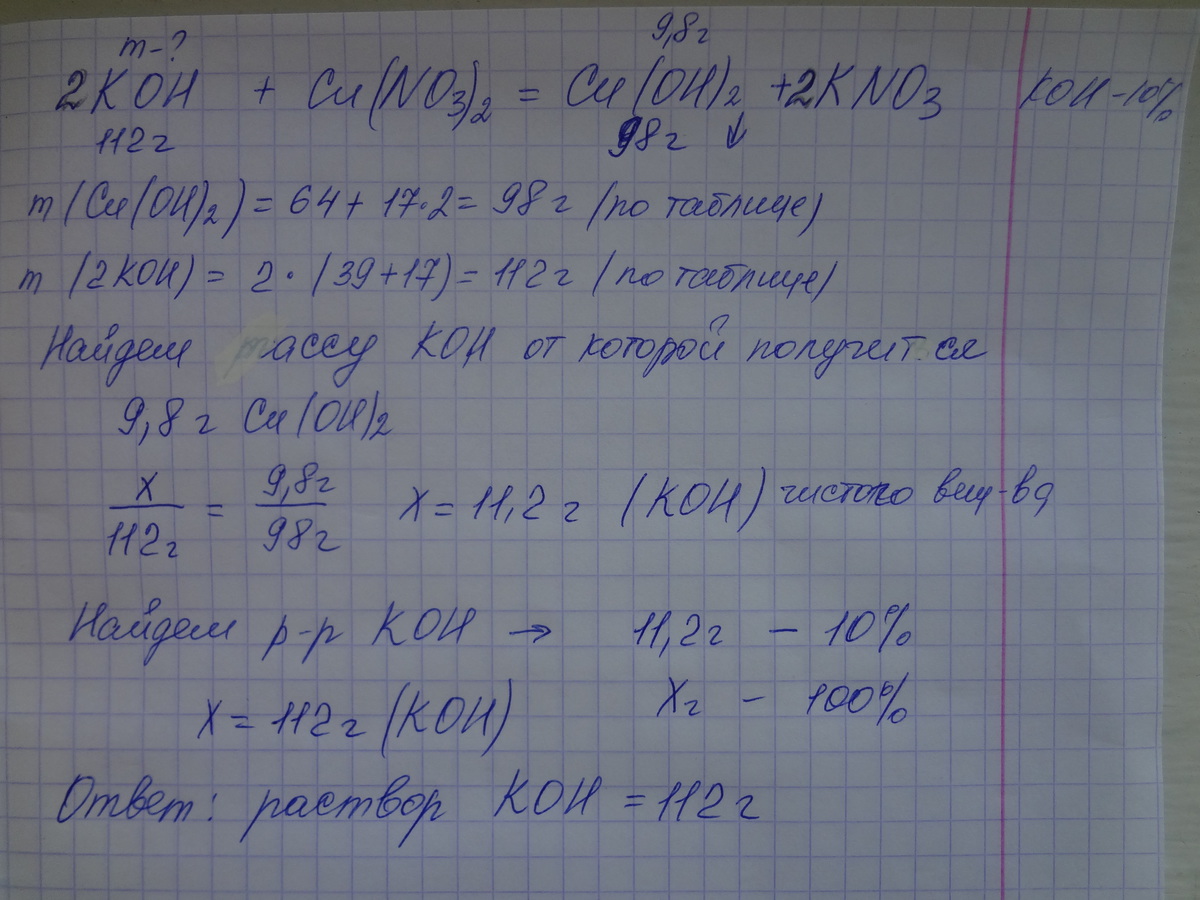 m-?
9,8г
2KOH + Cu(NO3)2 = Cu(OH)2 + 2KNO3 KOH-10%
112г 98г ↓
m (Cu(OH)2) = 64 + 17·2 = 98г (по таблице)
m (2KOH) = 2·(39+17) = 112г (по таблице)
Найдем массу KOH от которой получится
9,8г Cu(OH)2
x/112г = 9,8г/98г X = 11,2г (KOH) чистого вещ-ва
Найдем р-р KOH → 11,2г - 10%
X = 112г (KOH) Xг - 100%
Ответ: раствор KOH = 112г